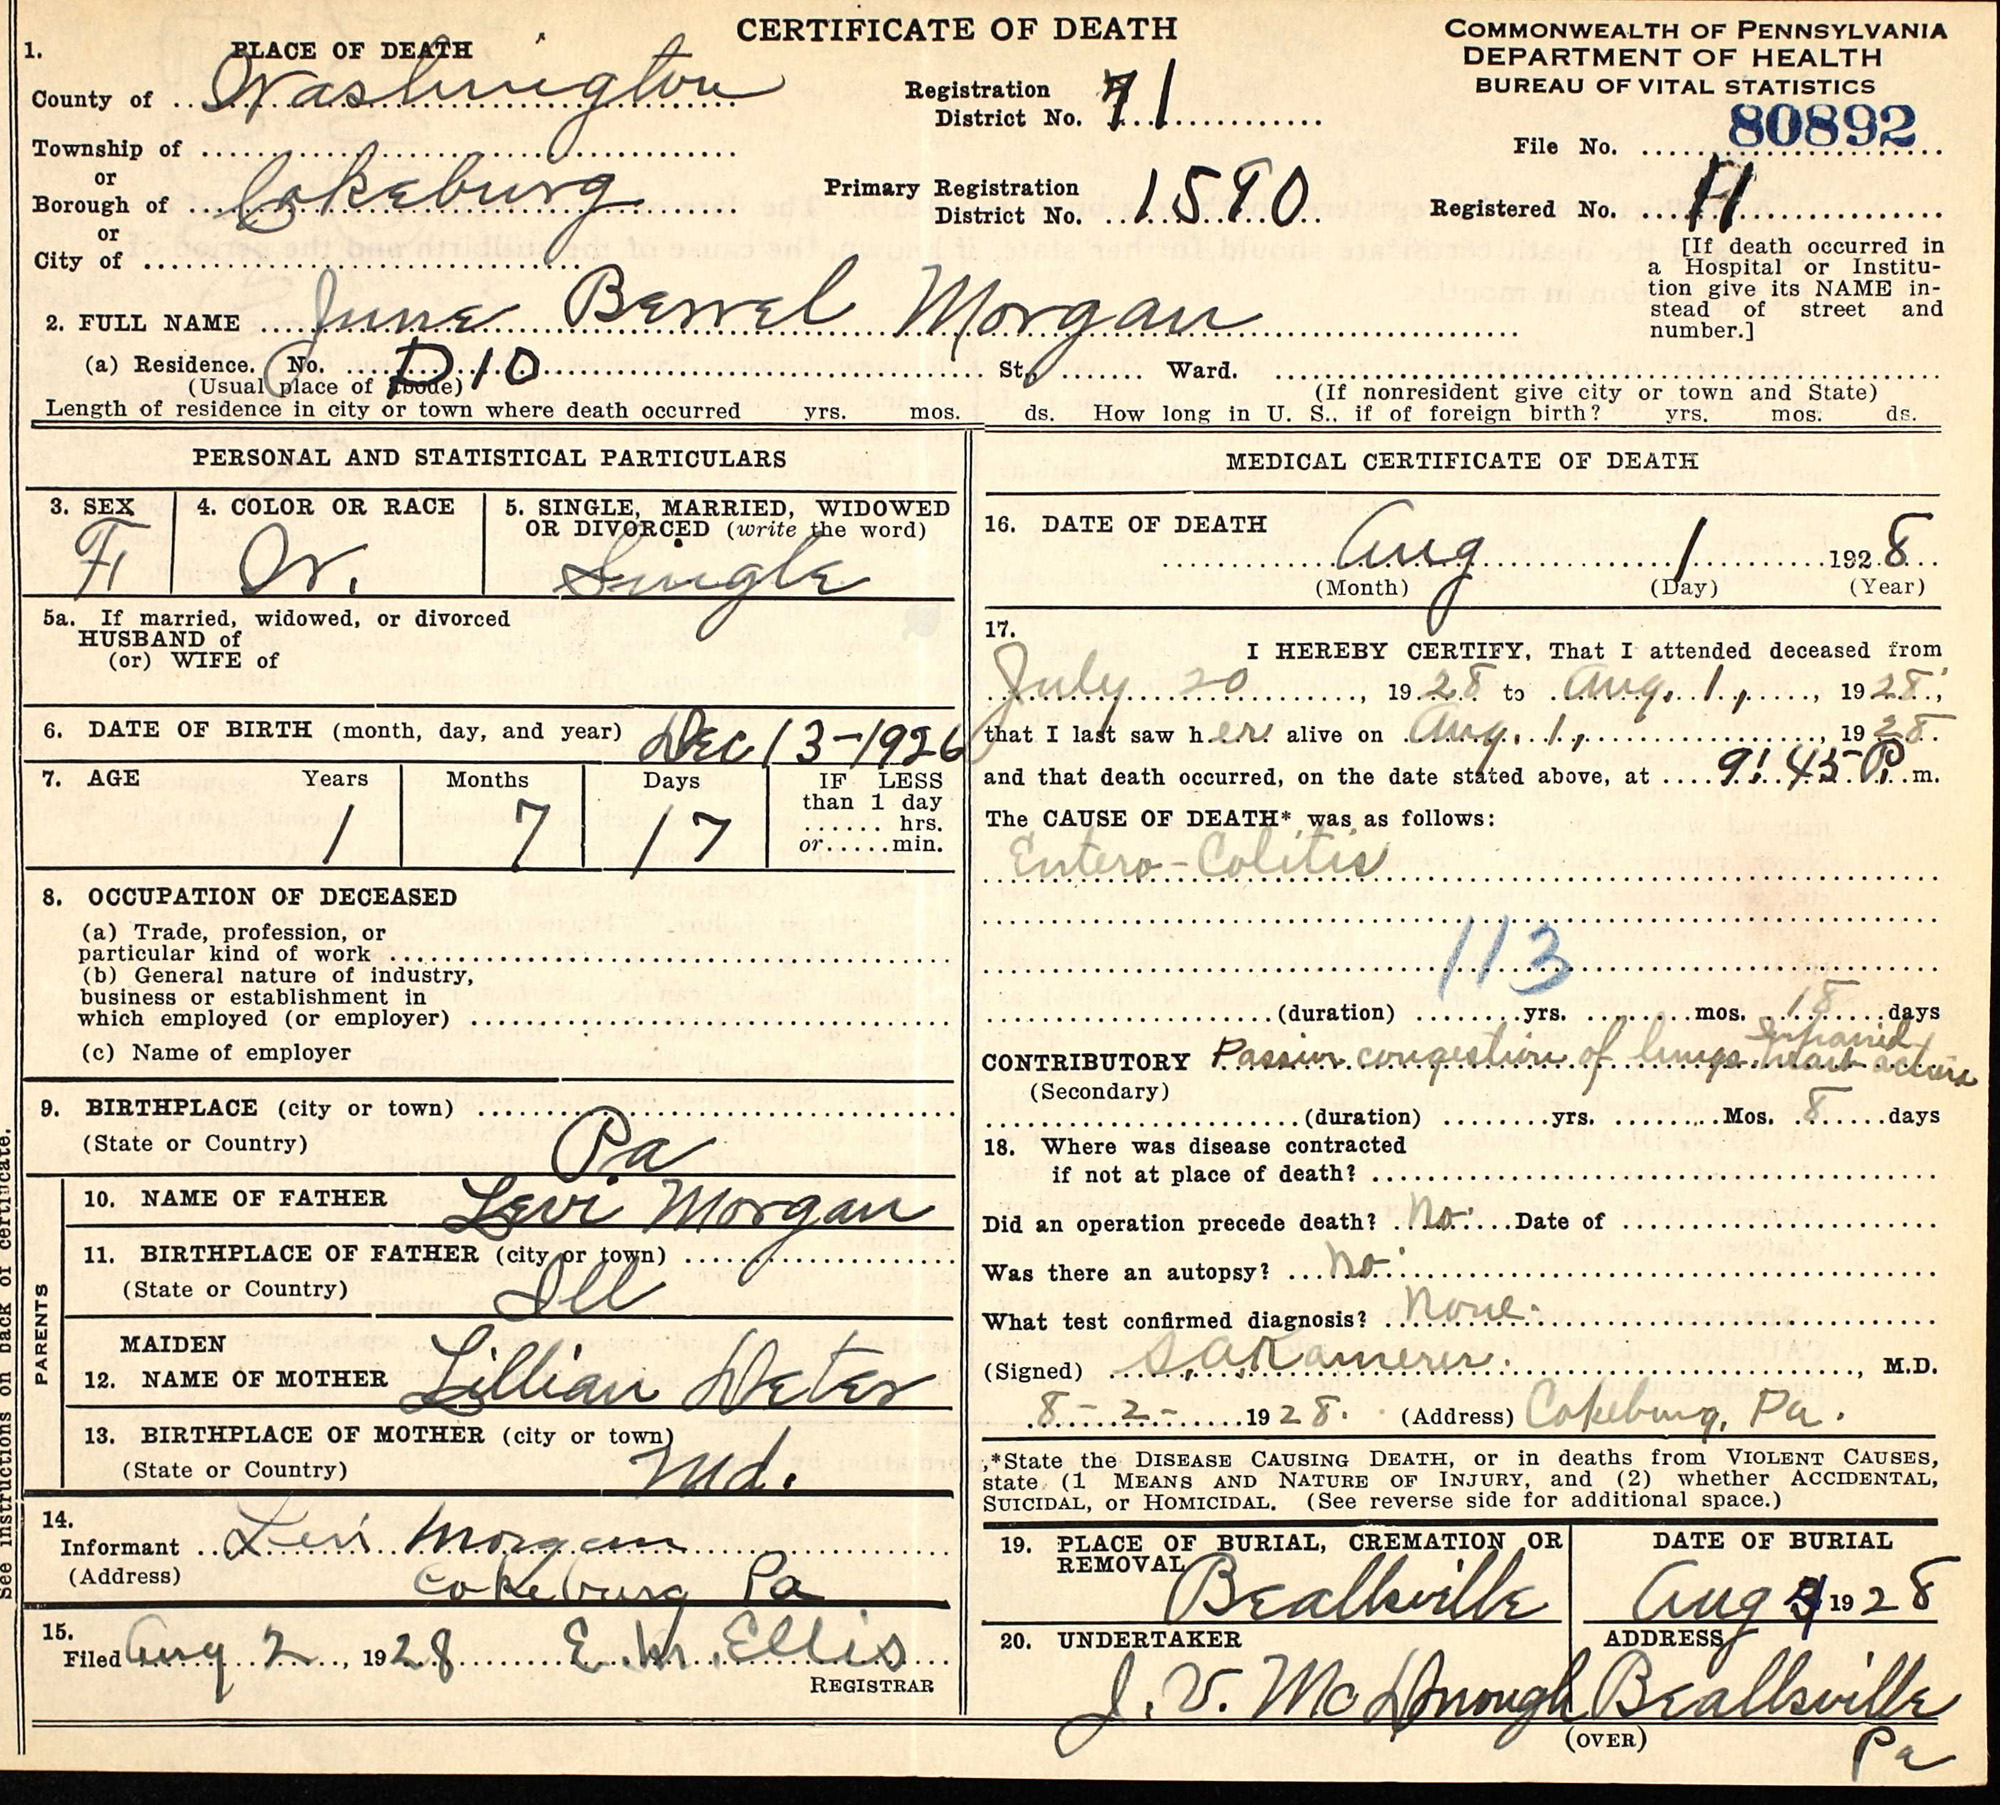 CERTIFICATE OF DEATH
COMMONWEALTH OF PENNSYLVANIA
DEPARTMENT OF HEALTH
BUREAU OF VITAL STATISTICS
1. PLACE OF DEATH
County of Washington
Township of
or
Borough of Cokeburg
or
City of
Registration District No. 71
Primary Registration District No. 1590
File No. 80892
Registered No.
[If death occurred in
a Hospital or Institu-
tion give its NAME in-
stead of street and
number.]
2. FULL NAME June Berrel Morgan
(a) Residence. No. D10 St., Ward.
(Usual place of abode) (If nonresident give city or town and State)
Length of residence in city or town where death occurred yrs. mos. ds. How long in U. S., if of foreign birth? yrs. mos. ds.
PERSONAL AND STATISTICAL PARTICULARS
3. SEX
F
4. COLOR OR RACE
W.
5. SINGLE, MARRIED, WIDOWED
OR DIVORCED (write the word)
Single
5a. If married, widowed, or divorced
HUSBAND of
(or) WIFE of
6. DATE OF BIRTH (month, day, and year) Dec 13-1926
7. AGE Years Months Days IF LESS
than 1 day
...... hrs.
or.....min.
1 7 17
8. OCCUPATION OF DECEASED
(a) Trade, profession, or
particular kind of work
(b) General nature of industry,
business or establishment in
which employed (or employer)
(c) Name of employer
9. BIRTHPLACE (city or town)
(State or Country) Pa
PARENTS
10. NAME OF FATHER Levi Morgan
11. BIRTHPLACE OF FATHER (city or town)
(State or Country) Ill
MAIDEN
12. NAME OF MOTHER Lillian Deter
13. BIRTHPLACE OF MOTHER (city or town)
(State or Country) Md.
14.
Informant Levi Morgan
(Address) Cokeburg Pa
15.
Filed Aug 2, 1928 E. M. Ellis
REGISTRAR
See instructions on back of certificate.
MEDICAL CERTIFICATE OF DEATH
16. DATE OF DEATH
Aug 1 1928
(Month) (Day) (Year)
17.
I HEREBY CERTIFY, That I attended deceased from
July 20, 1928 to Aug. 1, 1928,
that I last saw her alive on Aug. 1, 1928.
and that death occurred, on the date stated above, at 9:45 P. m.
The CAUSE OF DEATH* was as follows:
Entero-Colitis
113
(duration) yrs. mos. 18 days
CONTRIBUTORY Passive congestion of lungs Impaired heart action
(Secondary)
(duration) yrs. Mos. 8 days
18. Where was disease contracted
if not at place of death?
Did an operation precede death? No. Date of
Was there an autopsy? No.
What test confirmed diagnosis? None.
(Signed) S. A. Ramerer., M.D.
8-2-1928. (Address) Cokeburg, Pa.
*State the DISEASE CAUSING DEATH, or in deaths from VIOLENT CAUSES,
state (1 MEANS AND NATURE OF INJURY, and (2) whether ACCIDENTAL,
SUICIDAL, or HOMICIDAL. (See reverse side for additional space.)
19. PLACE OF BURIAL, CREMATION OR
REMOVAL
Beallsville
DATE OF BURIAL
Aug 1928
20. UNDERTAKER
J. V. McDonough
ADDRESS
Beallsville
Pa
(OVER)